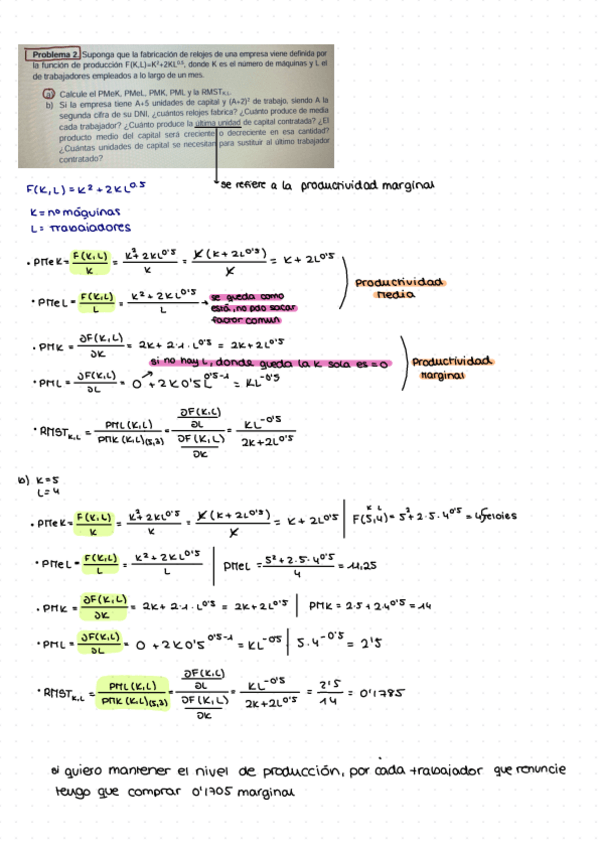 Problema 2. Suponga que la fabricación de relojes de una empresa viene definida por
la función de producción F(K,L)=K²+2KL⁰·⁵, donde K es el número de máquinas y L el
de trabajadores empleados a lo largo de un mes.
a) Calcule el PMeK, PMeL, PMK, PML y la RMST K,L.
b) Si la empresa tiene A+5 unidades de capital y (A+2)² de trabajo, siendo A la
segunda cifra de su DNI, ¿cuántos relojes fabrica? ¿Cuánto produce de media
cada trabajador? ¿Cuánto produce la última unidad de capital contratada? ¿El
producto medio del capital será creciente o decreciente en esa cantidad?
¿Cuántas unidades de capital se necesitan para sustituir al último trabajador
contratado?
se refiere a la productividad marginal
F(K,L) = K² + 2KL^0.5
K = nº máquinas
L = Trabajadores
• PMeK = F(K,L)/K = K² + 2KL^0'5/K = K(K + 2L^0'5)/K = K + 2L^0'5
• PMeL = F(K,L)/L = K² + 2KL^0'5/L → se queda como
está, no pdo sacar
factor común
Productividad
media
• PMK = ∂F(K,L)/∂K = 2K + 2·1·L^0'5 = 2K + 2L^0'5
si no hay L, donde queda la K sola es = 0
• PML = ∂F(K,L)/∂L = 0 + 2K0'5L^0'5-1 = KL^-0'5
Productividad
marginal
• RMST K,L = PML(K,L)/PMK(K,L)(5,3) = ∂F(K,L)/∂L / ∂F(K,L)/∂K = KL^-0'5/2K+2L^0'5
b) K=5
L=4
• PMeK = F(K,L)/K = K² + 2KL^0'5/K = K(K + 2L^0'5)/K = K + 2L^0'5 | F(5,4) = 5² + 2·5·4^0'5 = 45relojes
• PMeL = F(K,L)/L = K² + 2KL^0'5/L | PMeL = 5² + 2·5·4^0'5/4 = 11,25
• PMK = ∂F(K,L)/∂K = 2K + 2·1·L^0'5 = 2K + 2L^0'5 | PMK = 2·5 + 2·4^0'5 = 14
• PML = ∂F(K,L)/∂L = 0 + 2K0'5^0'5-1 = KL^-05 | 5·4^-0'5 = 2'5
• RMST K,L = PML(K,L)/PMK(K,L)(5,3) = ∂F(K,L)/∂L / ∂F(K,L)/∂K = KL^-0'5/2K+2L^0'5 = 2'5/14 = 0'1785
si quiero mantener el nivel de producción, por cada trabajador que renuncie
tengo que comprar 0'1705 marginal